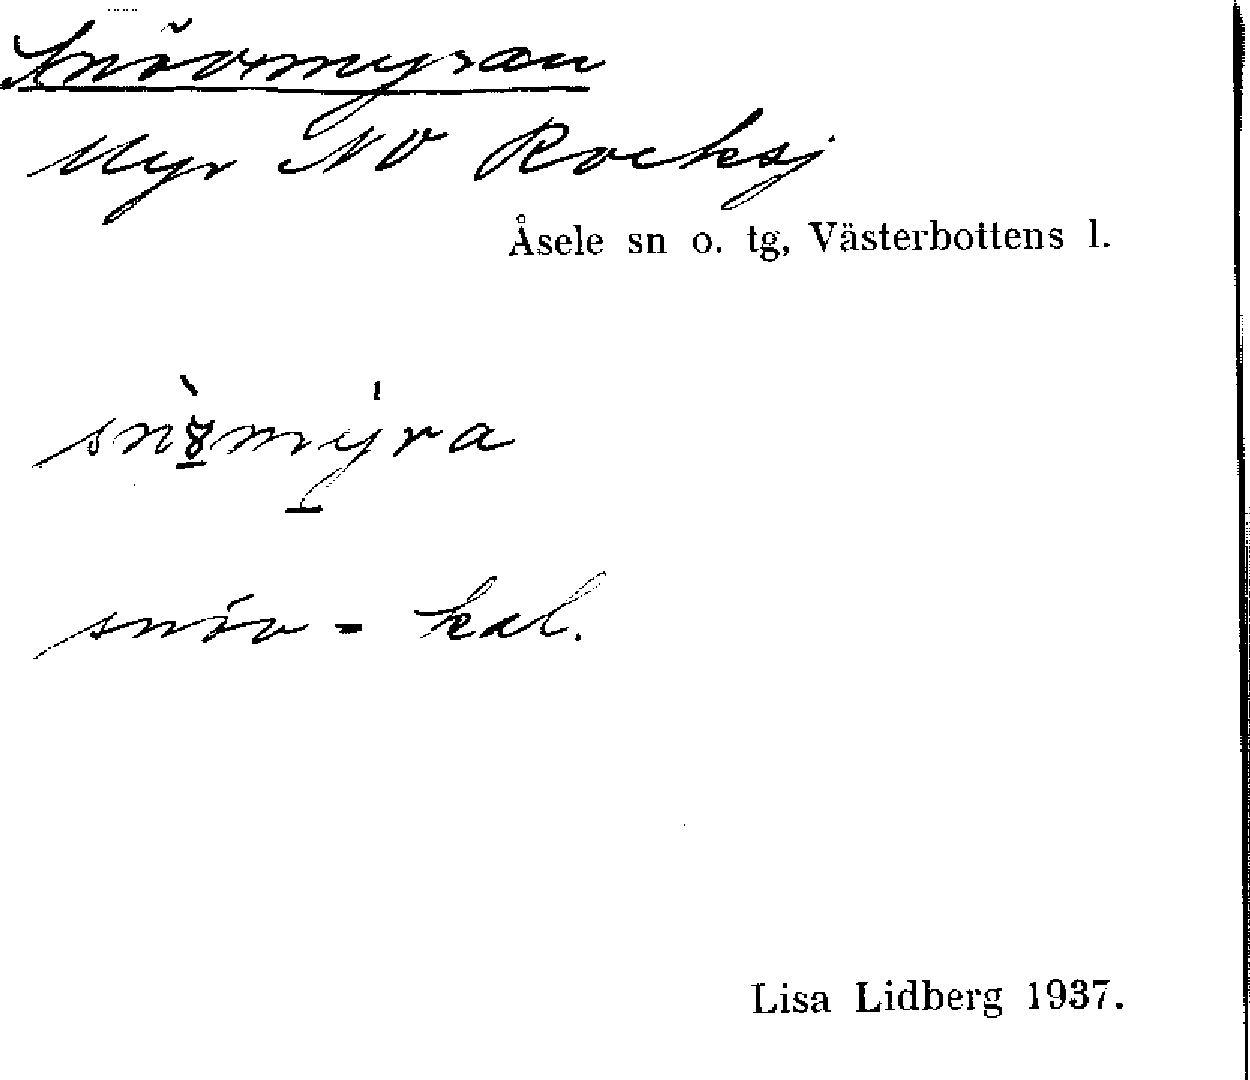 Snövmyran
Myr NO Rocksj
Åsele sn o. tg, Västerbottens l.
snöv = kal.
Lisa Lidberg 1937.